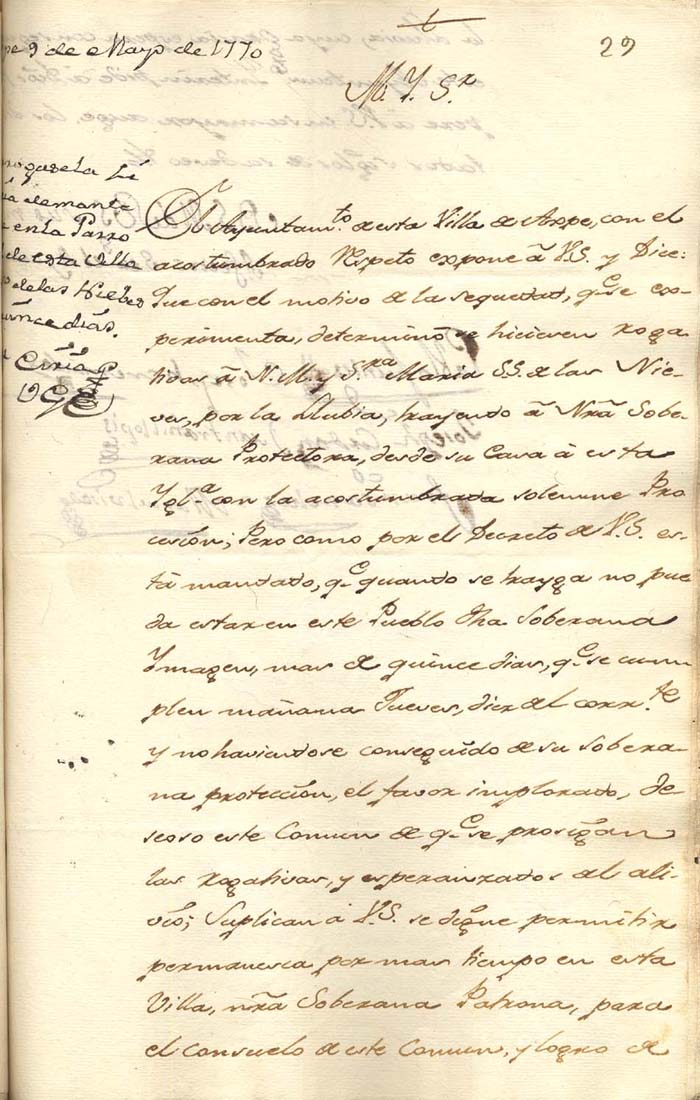 9 de Mayo de 1770
29
M. Y. S.r
la Li
demante
en la Parro
de esta Villa
de las Niebes
quince dias.
El Ayuntam.to de esta Villa de Aspe, con el
acostumbrado Respeto expone â V.S. y Dice:
Que con el motivo de la sequedad, q.e se ex-
perimenta, determinó se hiciesen roga-
tivas â N. M. y S.ra Maria SS. de las Nie-
ves, por la Llubia, trayendo â Nrâ Sobe-
rana Protectora, desde su Casa â esta
Ygl.a con la acostumbrada solemne Pro-
cesion; Pero como por el Decreto de V.S. es-
tâ mandado, q.e quando se trayga no pue-
da estar en este Pueblo dha Soberana
Ymagen, mas de quince dias, q.e se cum-
plen mañana Jueves, diez del corr.te
y no haviendose conseguido de su sobera-
na protección, el favor implorado, de-
seoso este Comun de q.e se prosigan
las rogativas, y esperanzados del ali-
vio; Suplican â V.S. se digne permitir
permanesca por mas tiempo en esta
Villa, nrâ Soberana Patrona, para
el consuelo de este Comun, y logro de